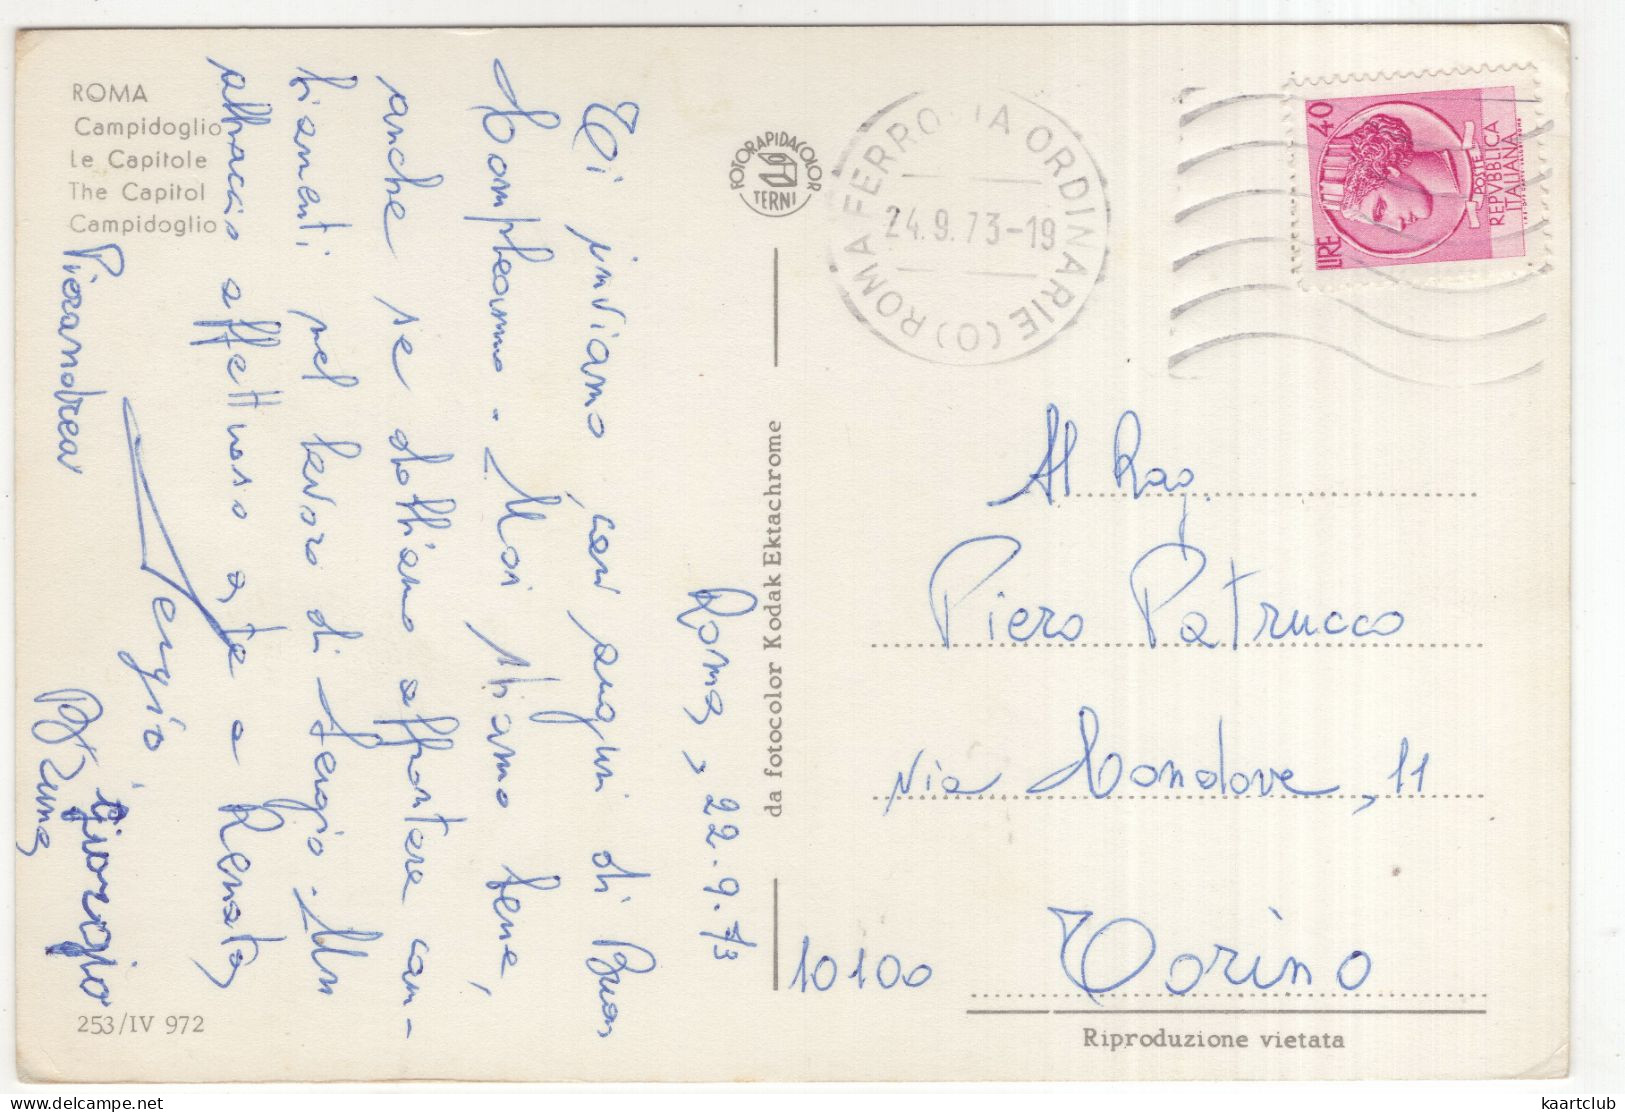 ROMA
Campidoglio
Le Capitole
The Capitol
Campidoglio
Roma, 22.9.73
Ti inviamo i cari auguri di Buon
Compleanno - Noi stiamo bene,
anche se dobbiamo affrontare cam-
biamenti nel lavoro di Sergio. Un
abbraccio affettuoso a te e Renata
Pierandrea
Sergio
Giorgio
253/IV 972
FOTORAPIDACOLOR
TERNI
da fotocolor Kodak Ektachrome
ROMA FERROVIA ORDINARIE (O) ROMA
24.9.73-19
LIRE 40
POSTE
REPVBBLICA
ITALIANA
Al Rag.
Piero Patrucco
Via Condove, 11
10100 Torino
Riproduzione vietata
kaartclub